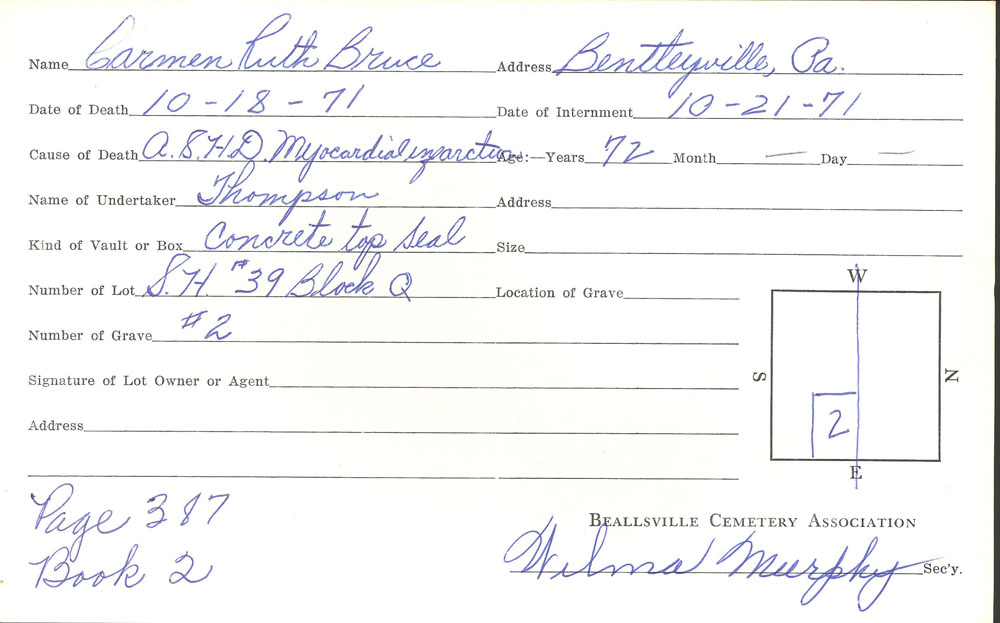 Name Carmen Ruth Bruce Address Bentleyville, Pa.
Date of Death 10-18-71 Date of Internment 10-21-71
Cause of Death A.S.H.D. Myocardial infarction Age:—Years 72 Month — Day —
Name of Undertaker Thompson Address
Kind of Vault or Box Concrete top seal Size
Number of Lot S.H. #39 Block Q Location of Grave
W
Number of Grave #2
Signature of Lot Owner or Agent
S N
Address
2
E
Page 387
Beallsville Cemetery Association
Book 2
Wilma Murphy Sec'y.